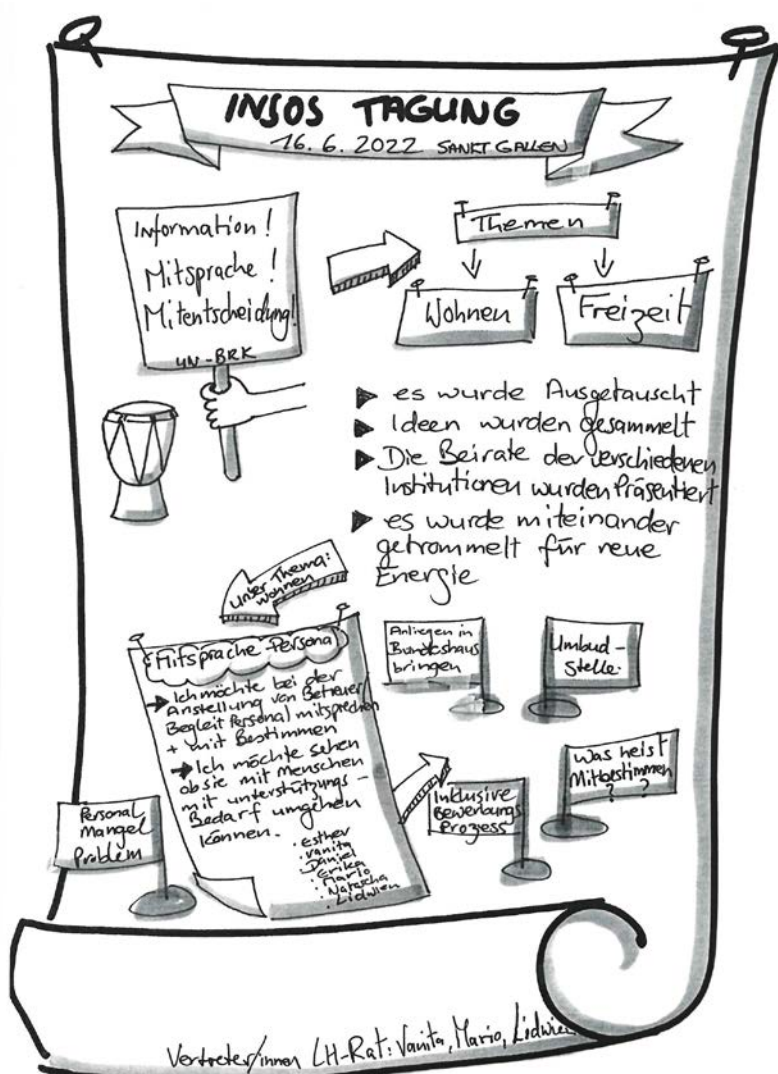 INSOS TAGUNG
16.6.2022 SANKT GALLEN
Information!
Mitsprache!
Mitentscheidung!
UN-BRK
Themen
Wohnen
Freizeit
es wurde Ausgetauscht
Ideen wurden gesammelt
Die Beirate der verschiedenen
Institutionen wurden Präsentiert
es wurde miteinander
getrommelt für neue
Energie
Unser Thema:
wohnen
Mitsprache-Personal
Ich möchte bei der
Anstellung von Betreuer/
Begleit Personal mitsprechen
+ mit Bestimmen
Ich möchte sehen
ob sie mit Menschen
mit unterstützungs-
Bedarf umgehen
können.
· Esther
· Vanita
· Daniel
· Erika
· Mario
· Natascha
· Lidwien
Anliegen in
Bundeshaus
bringen
Umbud-
stelle.
Inklusive
Bewerbungs
Prozess
Was heist
Mitbestimmen
? ?
Personal
Mangel
Problem
Vertreter/innen LH-Rat: Vanita, Mario, Lidwien